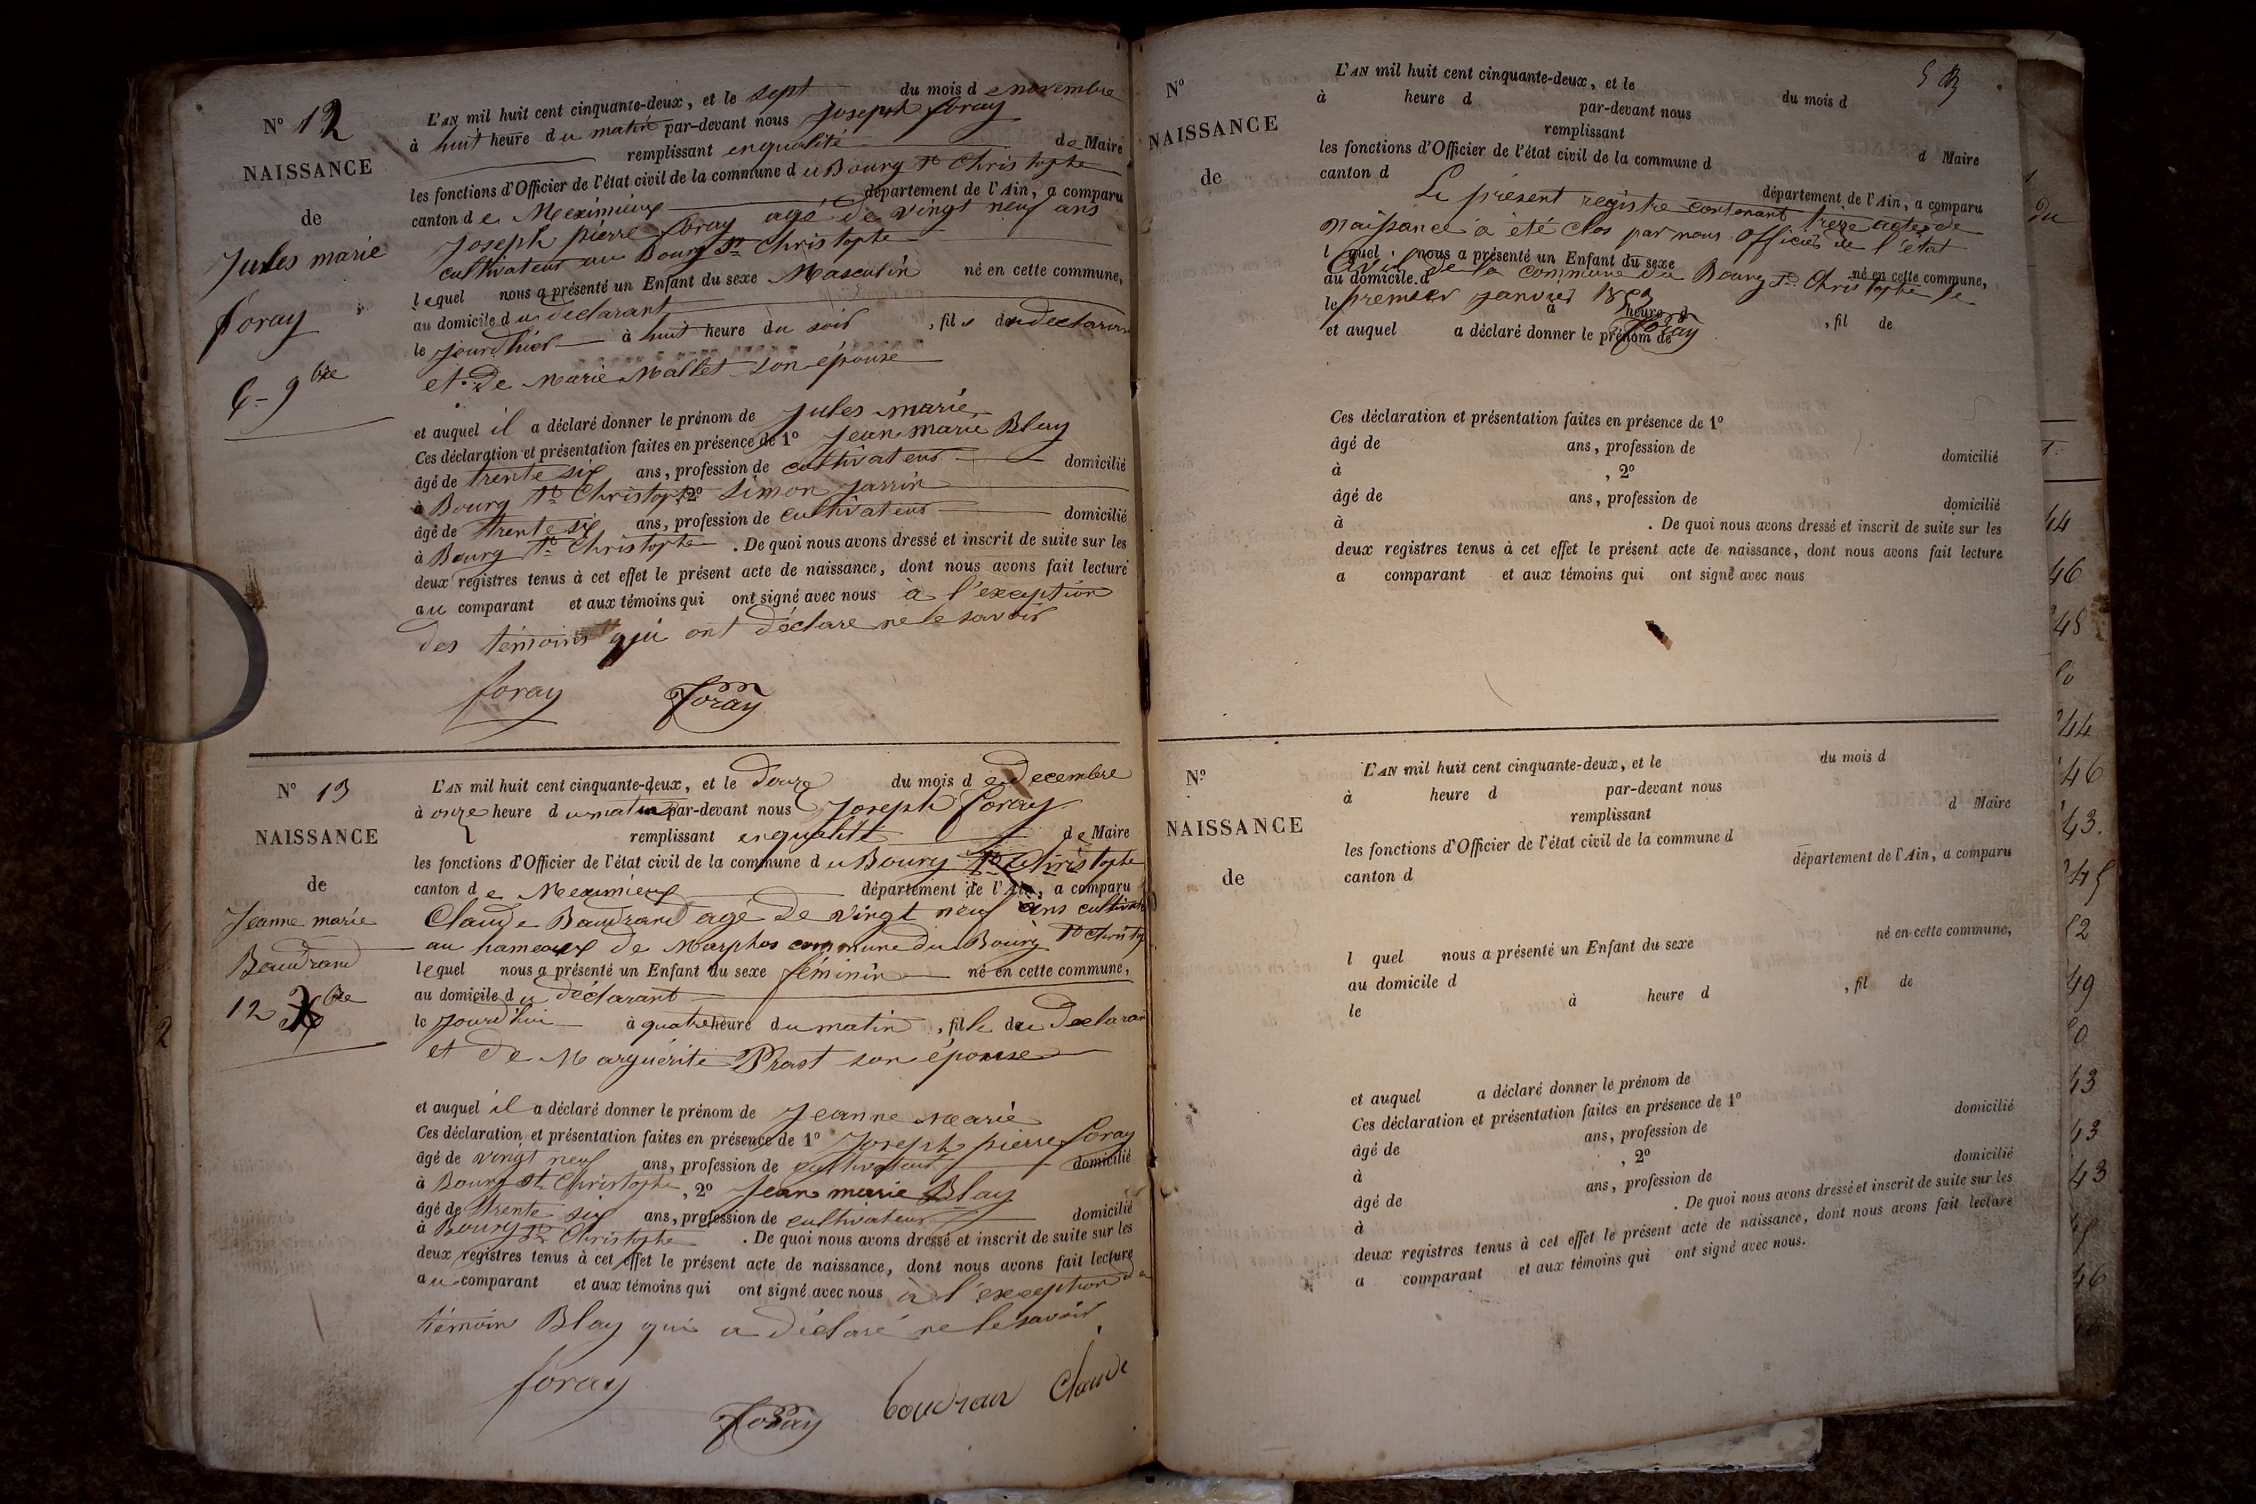 N° 12
NAISSANCE
de
Jules marie
foray
6 - 9bre
L'AN mil huit cent cinquante-deux, et le sept du mois de novembre
à huit heure du matin par-devant nous Joseph foray
remplissant en qualité de Maire
les fonctions d'Officier de l'état civil de la commune du Bourg St Christophe
canton de Meximieux département de l'Ain, a comparu
Joseph pierre foray agé de vingt neuf ans
cultivateur au Bourg St Christophe
lequel nous a présenté un Enfant du sexe Masculin né en cette commune,
au domicile du declarant
le jourd'hier à huit heure du soir, fils du declarant
et de Marie Mallet son épouse
et auquel il a déclaré donner le prénom de Jules marie
Ces déclaration et présentation faites en présence de 1° Jean marie Blay
âgé de trente six ans, profession de cultivateur domicilié
à Bourg St Christophe 2° simon jarrin
âgé de trente six ans, profession de cultivateur domicilié
à Bourg St Christophe. De quoi nous avons dressé et inscrit de suite sur les
deux registres tenus à cet effet le présent acte de naissance, dont nous avons fait lecture
au comparant et aux témoins qui ont signé avec nous à l'exception
des témoins qui ont déclaré ne le savoir
foray Foray
N° 13
NAISSANCE
de
Jeanne marie
Baudrand
12 bre
L'AN mil huit cent cinquante-deux, et le douze du mois de decembre
à onze heure du matin par-devant nous Joseph foray
remplissant en qualité de Maire
les fonctions d'Officier de l'état civil de la commune du Bourg St Christophe
canton de Meximieux département de l'Ain, a comparu
Claude Baudrand agé de vingt neuf ans
au hameaux de Marphos commune du Bourg
lequel nous a présenté un Enfant du sexe féminin né en cette commune,
au domicile du déclarant
le jourd'hui à quatre heure du matin, fille du
et de Marguérite Prost son épouse
et auquel il a déclaré donner le prénom de Jeanne Marie
Ces déclaration et présentation faites en présence de 1° Joseph pierre foray
âgé de vingt neuf ans, profession de cultivateur domicilié
à Bourg St Christophe, 2° Jean marie Blay
âgé de trente six ans, profession de cultivateur domicilié
à Bourg St Christophe. De quoi nous avons dressé et inscrit de suite sur les
deux registres tenus à cet effet le présent acte de naissance, dont nous avons fait lecture
au comparant et aux témoins qui ont signé avec nous à l'exception du
témoin Blay qui a déclaré ne le savoir
foray Foray boudran Claude
N°
NAISSANCE
de
L'AN mil huit cent cinquante-deux, et le du mois d
à heure d par-devant nous
remplissant d Maire
les fonctions d'Officier de l'état civil de la commune d
canton d département de l'Ain, a comparu
Le présent registre contenant treize actes de
Naissance à été clos par nous Officier de l'état
l quel nous a présenté un Enfant du sexe né en cette commune,
Civil de la commune du Bourg St Christophe le
au domicile d
premier janvier 1853
le à heure d, fil de
Foray
et auquel a déclaré donner le prénom de
Ces déclaration et présentation faites en présence de 1°
âgé de ans, profession de domicilié
à, 2°
âgé de ans, profession de domicilié
à. De quoi nous avons dressé et inscrit de suite sur les
deux registres tenus à cet effet le présent acte de naissance, dont nous avons fait lecture
a comparant et aux témoins qui ont signé avec nous
N°
NAISSANCE
de
L'AN mil huit cent cinquante-deux, et le du mois d
à heure d par-devant nous
remplissant d Maire
les fonctions d'Officier de l'état civil de la commune d
canton d département de l'Ain, a comparu
l quel nous a présenté un Enfant du sexe né en cette commune,
au domicile d
le à heure d, fil de
et auquel a déclaré donner le prénom de
Ces déclaration et présentation faites en présence de 1°
âgé de ans, profession de domicilié
à, 2°
âgé de ans, profession de domicilié
à. De quoi nous avons dressé et inscrit de suite sur les
deux registres tenus à cet effet le présent acte de naissance, dont nous avons fait lecture
a comparant et aux témoins qui ont signé avec nous.
du
44
46
45
44
46
43.
45
52
49
43
43
43
46